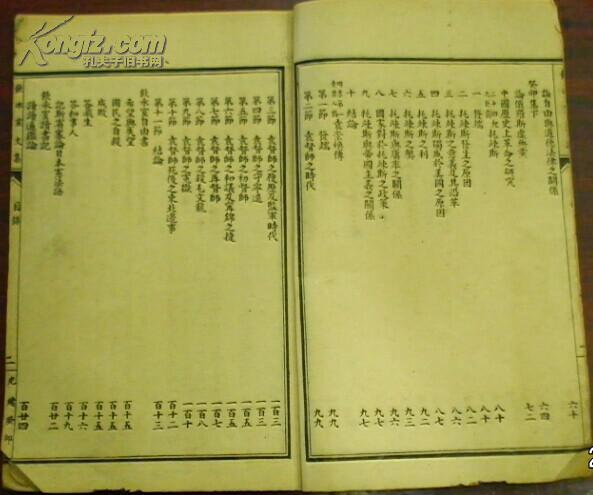 Kongfz.com
孔夫子旧书网
論自由與道德法律之關係 六十
癸卯集下
論俄羅斯虛無黨 六四
中國歷史上革命之研究 七二
二十世紀之巨靈托辣斯 八十
一 發端 八十
二 托辣斯發生之原因 八一
三 托辣斯之意義及其沿革 八六
四 托辣斯獨盛於美國之原因 八七
五 托辣斯之利 九二
六 托辣斯之弊 九三
七 托辣斯與庸率之關係 九六
八 國家對於托辣斯之政策 九七
九 托辣斯與帝國主義之關係 九七
十 結論 九七
袁崇煥傳
第一節 發端 九九
第二節 袁督師之時代 九九
第三節 袁督師之履歷及監軍時代 一百三
第四節 袁督師之守寧遠 一百三
第五節 袁督師之初督師 一百五
第六節 袁督師之和議及寧錦之捷 一百五
第七節 袁督師之再督師 一百七
第八節 袁督師之殺毛文龍 一百八
第九節 袁督師之冤獄 一百十
第十節 袁督師死後之東北邊事 百十二
第十一節 結論 百十三
飲氷室自由書
希望與失望 百十五
國民之自殺 百十五
成敗 百十五
答飛生 百十六
答和事人 百十九
飲氷室讀書記
記斯賓塞論日本憲法語 百二十
讀讀通鑑論 百廿四
飲氷室文集
目錄
二
光緒癸卯